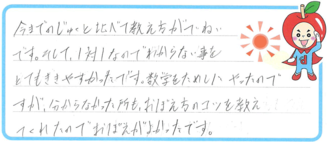 今までのじゅくと比べて教え方がていねい
です。そして、1対1なので分からない事を
とてもききやすかったです。数学をためしにやったので
すが、分からなかった所も、おぼえ方のコツを教え
てくれたのでおぼえがよかったです。